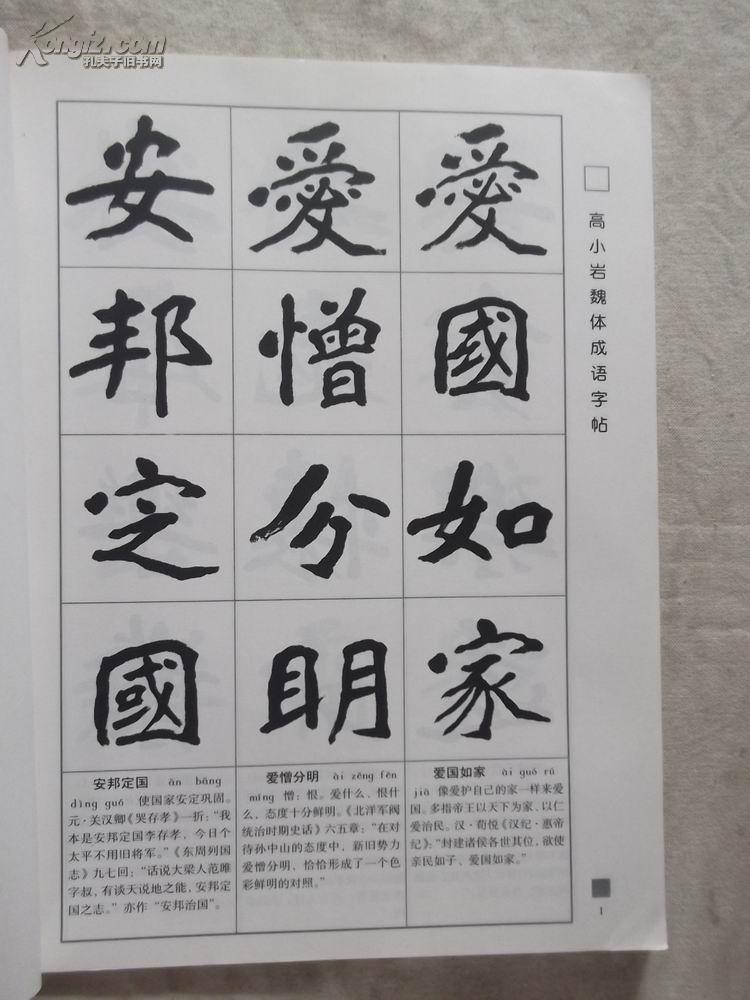 Kongfz.com
孔夫子旧书网
高小岩魏体成语字帖
愛國如家
愛憎分明
安邦定國
爱国如家 ài guó rú
jiā 像爱护自己的家一样来爱
国。多指帝王以天下为家、以仁
爱治民。汉·荀悦《汉纪·惠帝
纪》：“封建诸侯各世其位，欲使
亲民如子、爱国如家。”
爱憎分明 ài zēng fēn
míng 憎：恨。爱什么、恨什
么，态度十分鲜明。《北洋军阀
统治时期史话》六五章：“在对
待孙中山的态度中，新旧势力
爱憎分明，恰恰形成了一个色
彩鲜明的对照。”
安邦定国 ān bāng
dìng guó 使国家安定巩固。
元·关汉卿《哭存孝》一折：“我
本是安邦定国李存孝，今日个
太平不用旧将军。”《东周列国
志》九七回：“话说大梁人范雎
字叔，有谈天说地之能，安邦定
国之志。”亦作“安邦治国”。
1